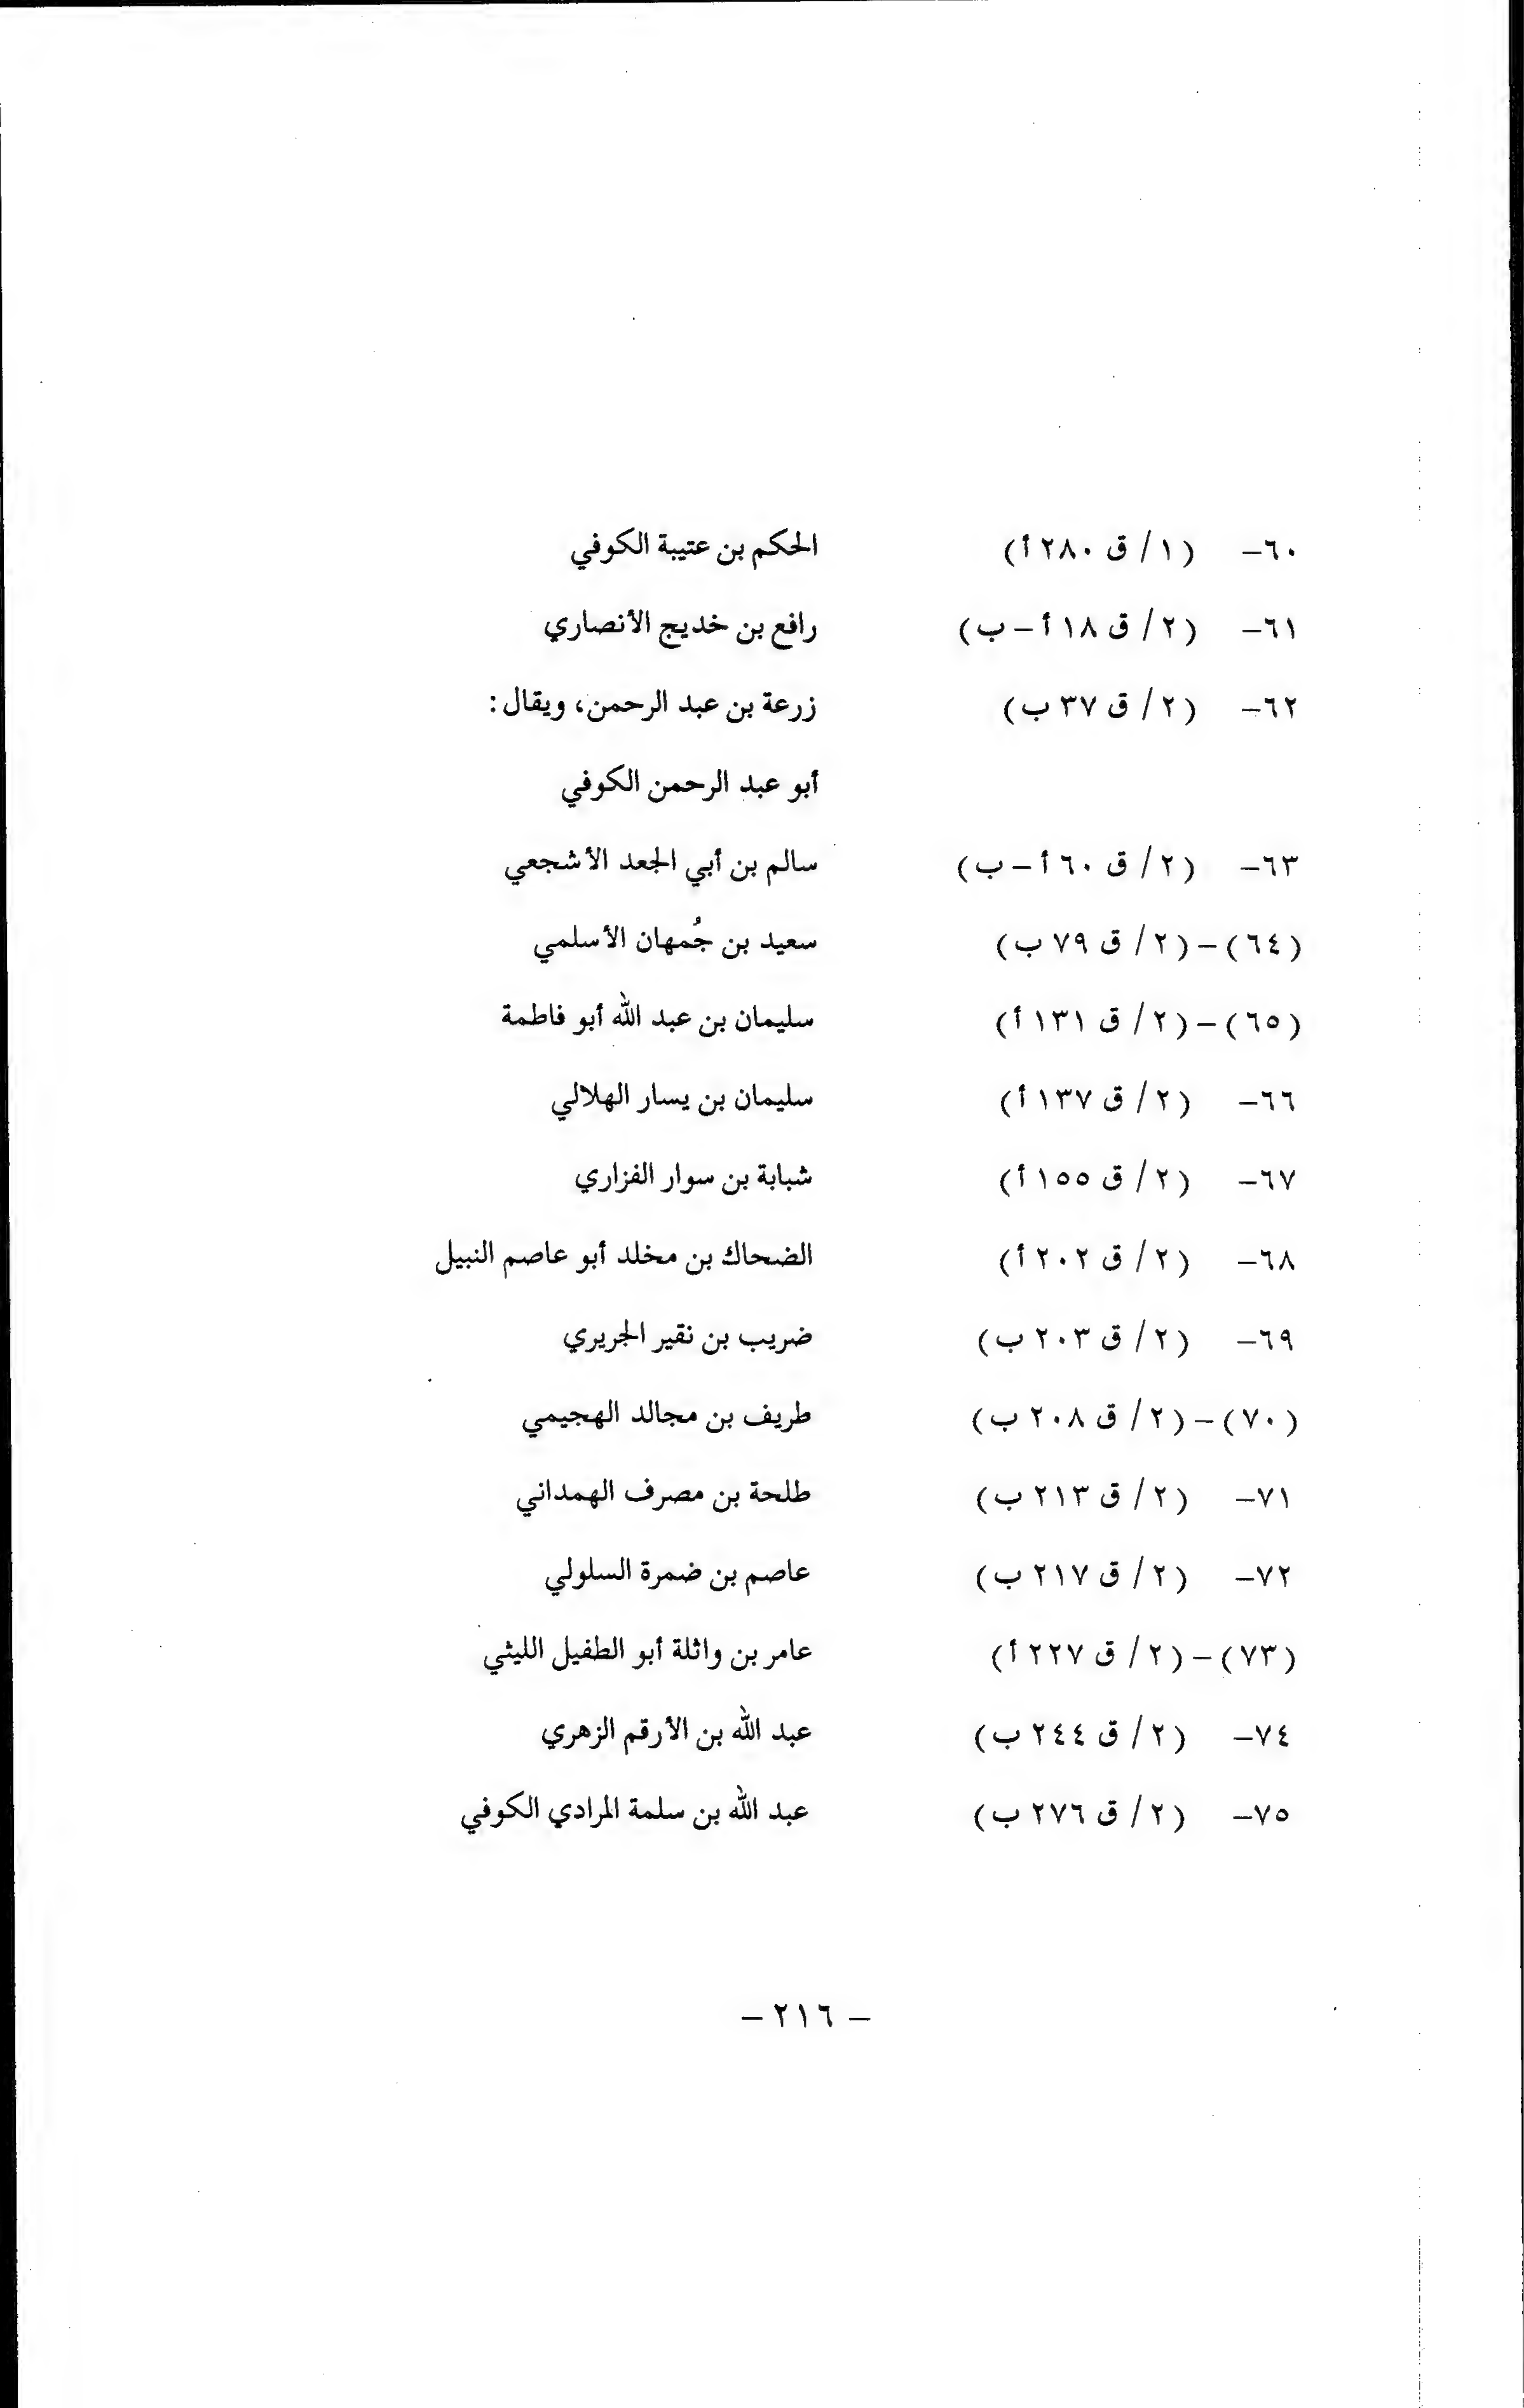 ٦٠- (١/ ق ٢٨٠ أ) الحكم بن عتيبة الكوفي
٦١- (٢/ ق ١٨ أ - ب) رافع بن خديج الأنصاري
٦٢- (٢/ ق ٣٧ ب) زرعة بن عبد الرحمن، ويقال:
أبو عبد الرحمن الكوفي
٦٣- (٢/ ق ٦٠ أ - ب) سالم بن أبي الجعد الأشجعي
(٦٤) - (٢/ ق ٧٩ ب) سعيد بن جُمهان الأسلمي
(٦٥) - (٢/ ق ١٣١ أ) سليمان بن عبد الله أبو فاطمة
٦٦- (٢/ ق ١٣٧ أ) سليمان بن يسار الهلالي
٦٧- (٢/ ق ١٥٥ أ) شبابة بن سوار الفزاري
٦٨- (٢/ ق ٢٠٢ أ) الضحاك بن مخلد أبو عاصم النبيل
٦٩- (٢/ ق ٢٠٣ ب) ضريب بن نقير الجريري
(٧٠) - (٢/ ق ٢٠٨ ب) طريف بن مجالد الهجيمي
٧١- (٢/ ق ٢١٣ ب) طلحة بن مصرف الهمداني
٧٢- (٢/ ق ٢١٧ ب) عاصم بن ضمرة السلولي
(٧٣) - (٢/ ق ٢٢٧ أ) عامر بن واثلة أبو الطفيل الليثي
٧٤- (٢/ ق ٢٤٤ ب) عبد الله بن الأرقم الزهري
٧٥- (٢/ ق ٢٧٦ ب) عبد الله بن سلمة المرادي الكوفي
- ٢١٦ -